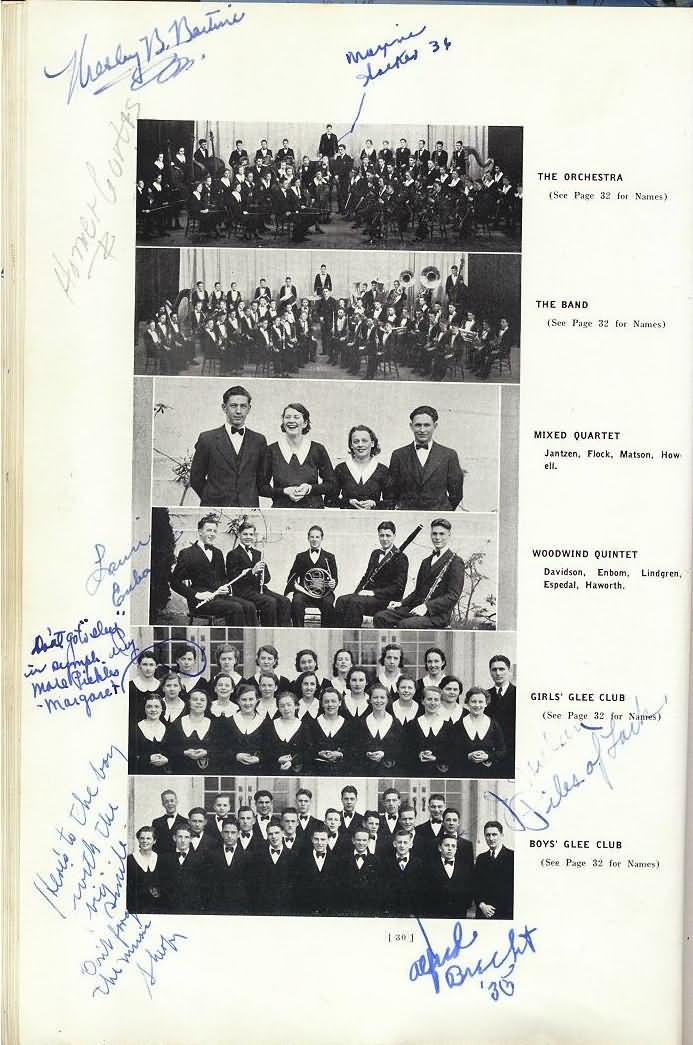 Wesley B. Bertine
Maxine
36
Homer Cortes
THE ORCHESTRA
(See Page 32 for Names)
THE BAND
(See Page 32 for Names)
MIXED QUARTET
Jantzen, Flock, Matson, How-
ell.
WOODWIND QUINTET
Davidson, Enbom, Lindgren,
Espedal, Haworth.
Don't go to sleep
in symph
More Pickles
-Margaret
GIRLS' GLEE CLUB
(See Page 32 for Names)
Piles of Luck
Here's to the boy
with the
big
smile
Don't forget
the music
BOYS' GLEE CLUB
(See Page 32 for Names)
[ 30 ]
Alfred
Brecht
'36